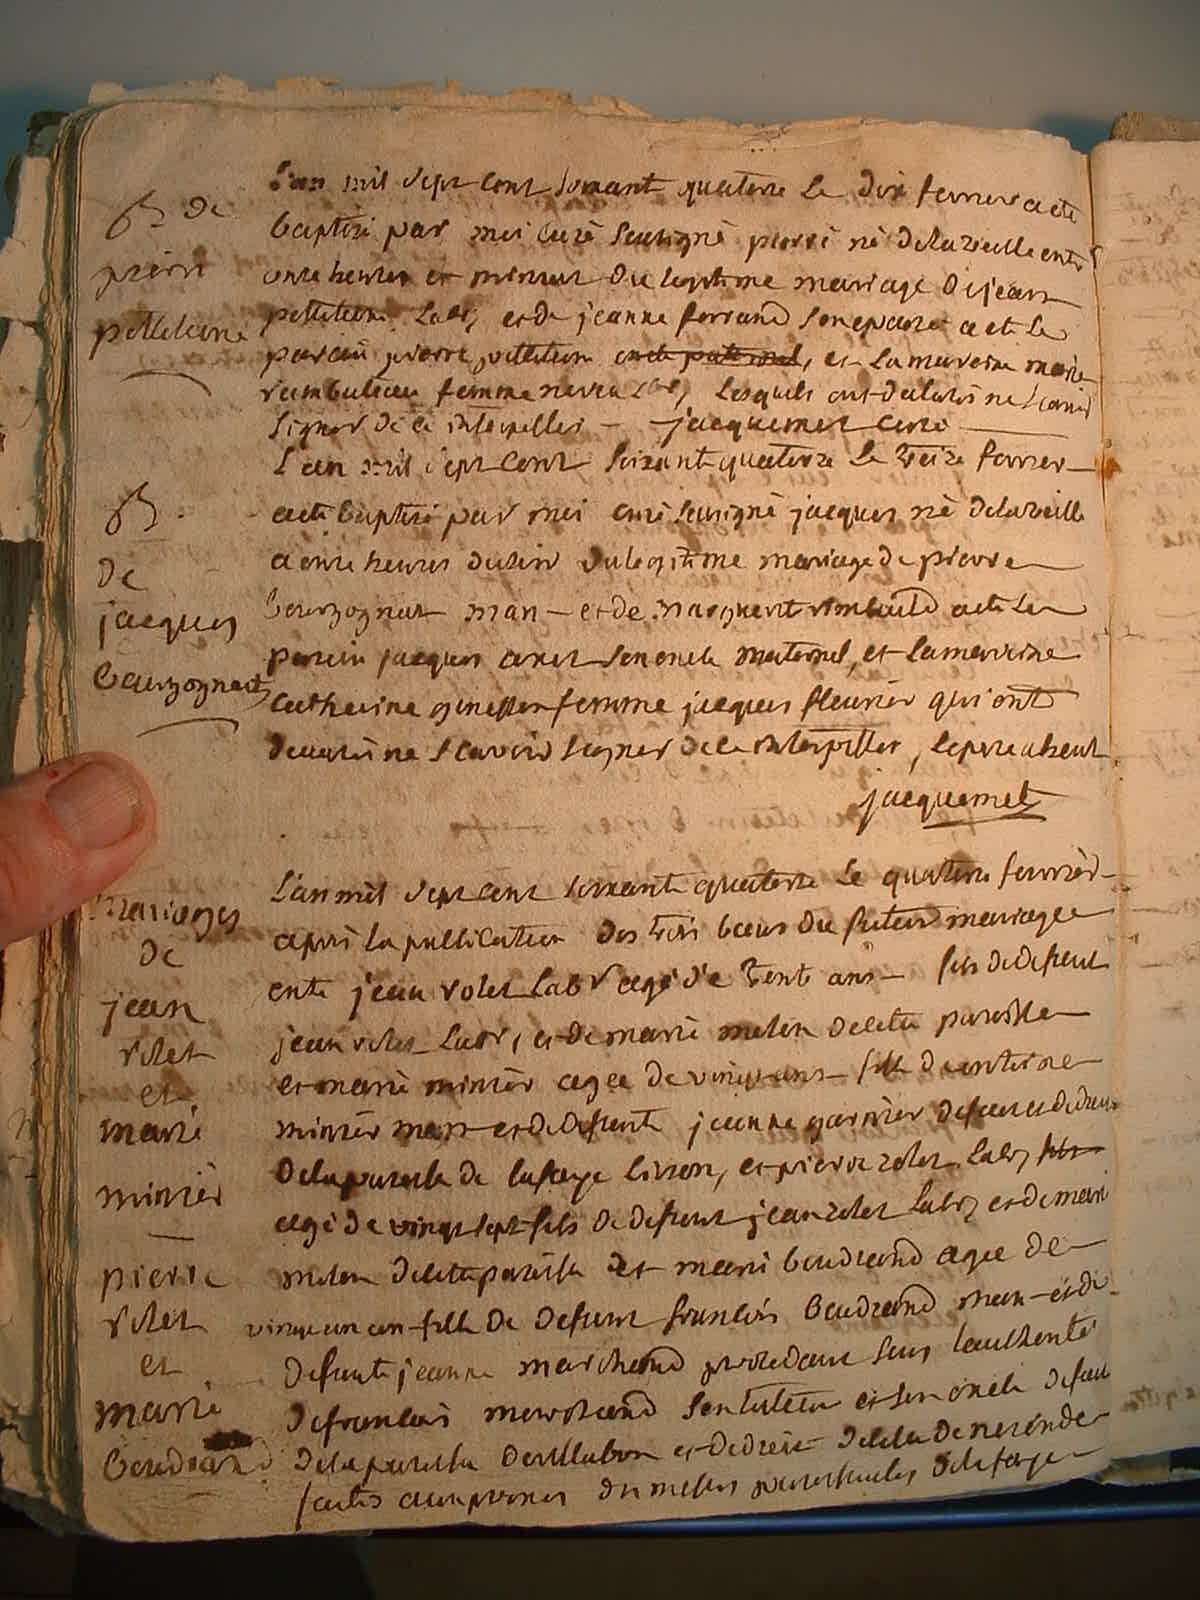 B. de
pierre
pelletan
L'an mil sept cent soixant quatorze le dix fevrier a eté
baptisé par moi curé soussigné pierre né de la veille entre
onze heures et minuit du legitime mariage de jean
labr, et de jeanne ferrand son epouse a eté le
parain pierre et la mareine marie
femme labr, lesquels ont declarés ne scavoir
signer de ce interpellés - jacquemet curé
B.
de
jacques
bourgognat
L'an mil sept cent soixant quatorze le treize fevrier
a eté baptisé par moi curé soussigné jacques né de la veille
a onze heures du soir du legitime mariage de pierre
bourgognat man - et de marguerit rimbaud a eté le
parein jacques son oncle maternel, et la mareine
catherine femme jacques fleurier qui ont
declarés ne scavoir signer de ce interpellés, le pere absent
jacquemet
Mariages
de
jean
rolet
et
marie
minier
pierre
rolet
et
marie
boudrand
L'an mil sept cent soixante quatorze le quatorze fevrier
après la publication des trois bans du futeur mariage
entre jean rolet labr agé de trent ans - fils de defeunt
jean rolet labr, et de marie melon de cette paroisse
et marie minier agee de vingt ans - fille d'antoine
minier man - et de defeunte jeanne garnier defait et de droit
de la paroisse de la et pierre rolet labr,
agé de vingt sept fils de defeunt jean rolet labr, et de marie
melon de cette paroisse et marie boudrand agee de
vingt un an - fille de defeunt francois boudrand man - et de
defeunte jeanne marchand procedant sous l'authorité
de francois marchand son tuteur et son oncle de fait
de la paroisse et de droit de celle de
faites aux prones des messes paroissiales de la